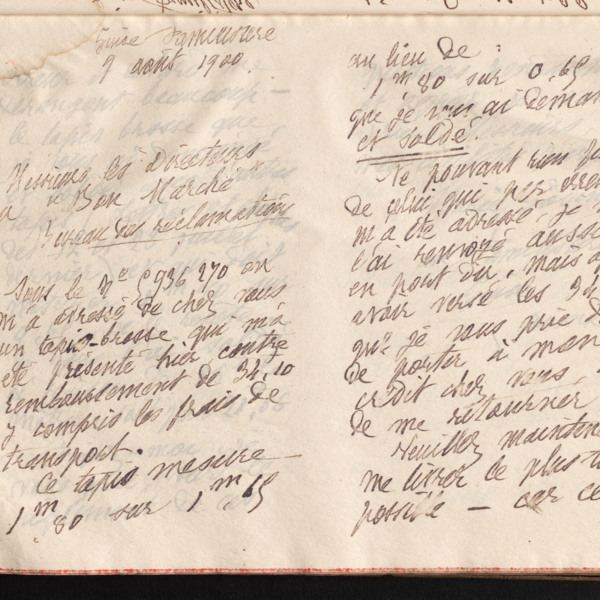 9 août 1900.
Messieurs les Directeurs
"Bon Marché"
Bureau des réclamations
Sous le No 5936 270 on
m'a adressé de chez vous
un tapis-brosse qui m'a
été présenté hier contre
remboursement de 34,10
y compris les frais de
transport.
Ce tapis mesure
1m 80 sur 1m,65
au lieu de :
1m 80 sur 0,65
que je vous ai deman
et soldé.
Ne pouvant rien
de celui qui par erre
m'a été adressé, je
l'ai renvoyé aussi
en port dû, mais a
avoir versé les 34
que je vous prie d
de porter à mon
crédit chez vous,
de me retourner
Veuillez mainten
me livrer le plus t
possible — car ce